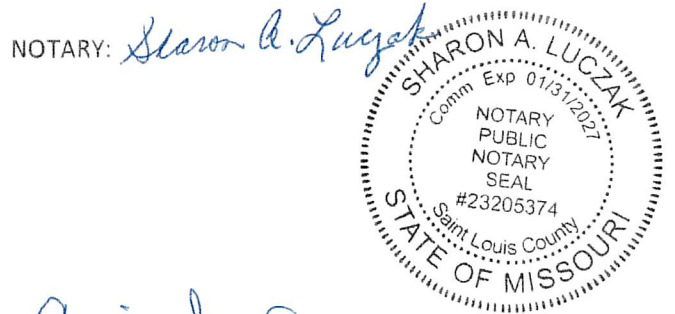 NOTARY: Sharon A. Luczak
SHARON A. LUCZAK
Comm Exp 01/31/2027
NOTARY
PUBLIC
NOTARY
SEAL
#23205374
Saint Louis County
STATE OF MISSOURI